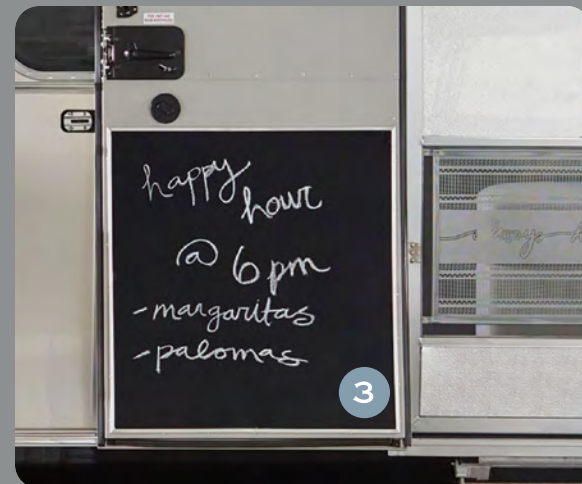 happy
hour
@ 6 pm
- margaritas
- palomas
3